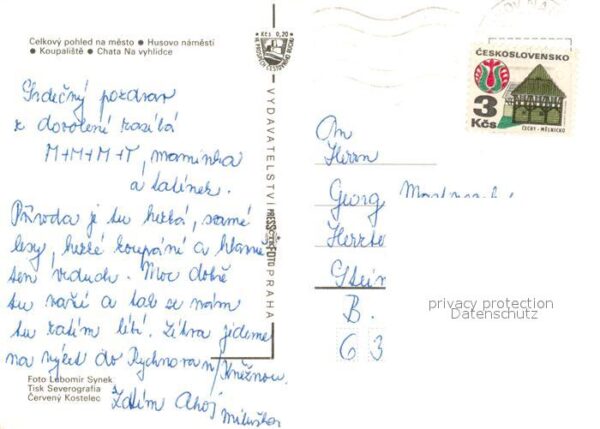 Celkový pohled na město • Husovo náměstí
• Koupaliště • Chata Na vyhlídce
Kčs 0,20
VYDAVATELSTVÍ PRESSFOTO PRAHA
ČESKOSLOVENSKO
3
Kčs
ČECHY - MĚLNICKO
Srdečný pozdrav
z dovolené zasílá
M+M+M+T, maminka
a tatínek.
Příroda je tu hezká, samé
lesy, hezké koupání a hlavně
ten vzduch. Moc dobře
tu vaří a tak se nám
tu zatím líbí. Zítra jedeme
na výlet do Rychnova n/
Kněžnou.
Zatím Ahoj
An
Herrn
Georg
Stein
B.
63
privacy protection
Datenschutz
Foto Lubomír Synek
Tisk Severografia
Červený Kostelec